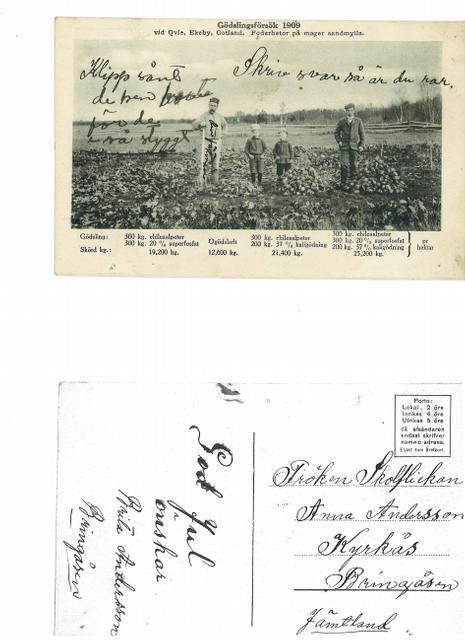 Gödslingsförsök 1909
vid Qvie, Ekeby, Gotland. Foderbetor på mager sandmylla.
Skriv svar så är du rar
Klipp sånt
de
för de
i så styggt
Gödsling: 300 kg. chilesalpeter 300 kg. 20 % superfosfat Ogödsladt 300 kg. chilesalpeter 200 kg. 37 % kaligödning 300 kg. chilesalpeter 300 kg. 20 % superfosfat 200 kg. 37 % kaligödning pr hektar
Skörd kg.: 19,200 kg. 12,600 kg. 21,400 kg. 25,200 kg.
Porto:
Lokal. 2 öre
Inrikes 4 öre
Utrikes 5 öre
då afsändaren
endast skrifver
namn o. adress.
Eljest som Brefkort.
God Jul
önskar
Brita Andersson
Bringåsen
Fröken Skolflickan
Anna Andersson
Kyrkås
Bringåsen
Jämtland